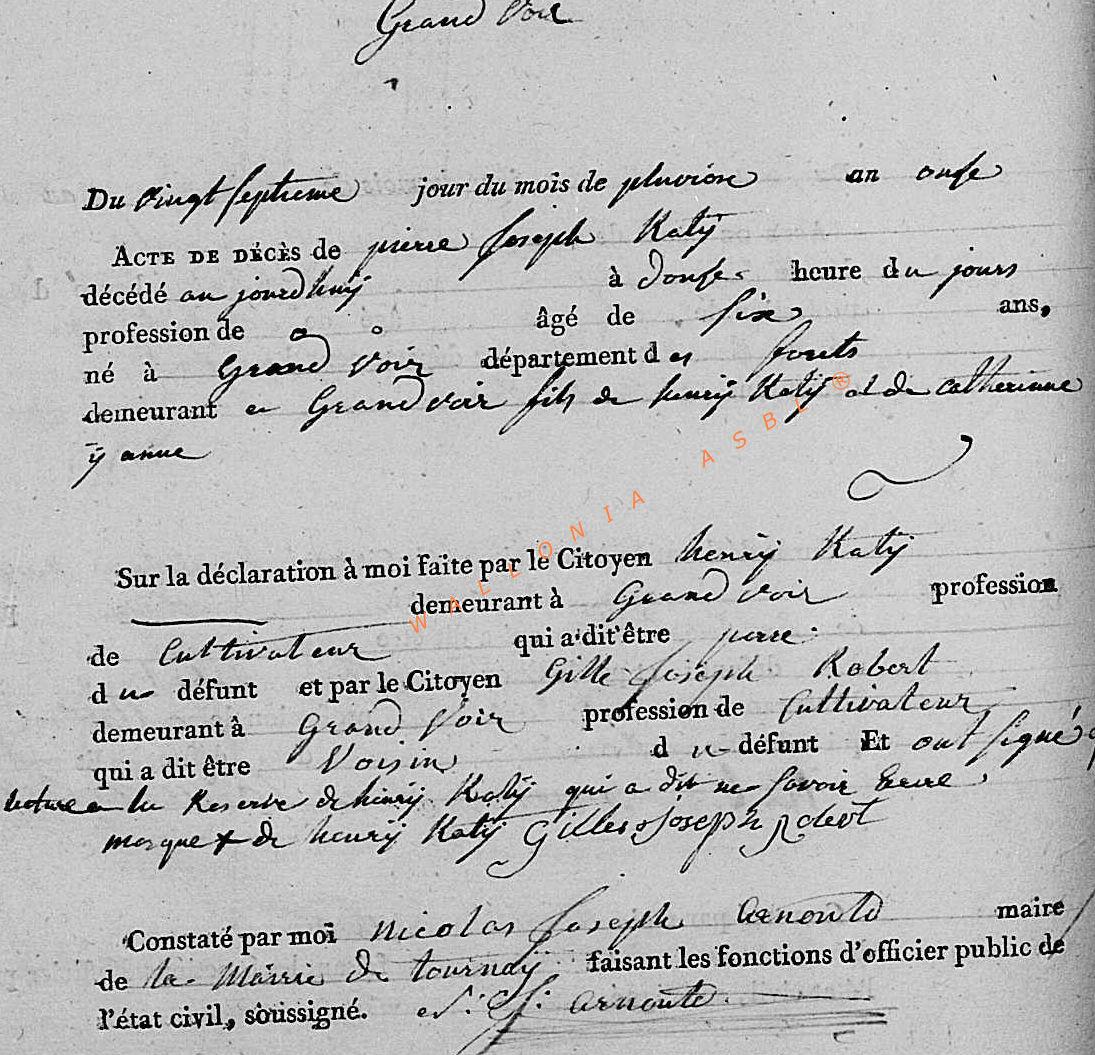 Grand Voir
Du Vingt septieme jour du mois de pluviose an onse
ACTE DE DÉCÈS de pierre Joseph Katÿ
décédé au jourdhuÿ à douse heure du jours
profession de âgé de six ans,
né à Grand Voir département des forets
demeurant a Grand voir fils de henrÿ Katÿ et de Catherinne
Sur la déclaration à moi faite par le Citoyen henrÿ Katÿ
demeurant à Grand voir profession
de Cultivateur qui a dit être pere
du défunt et par le Citoyen Gille Joseph Robert
demeurant à Grand Voir profession de Cultivateur
qui a dit être Voisin du défunt Et ont signé
lecture a lu Reserve de henrÿ Katÿ qui a dit ne savoir
marque + de henrÿ Katÿ Gilles joseph
Constaté par moi Nicolas Joseph arnould maire
de la Mairie de tournaÿ faisant les fonctions d'officier public de
l'état civil, soussigné. arnould
WALLONIA ASBL ®